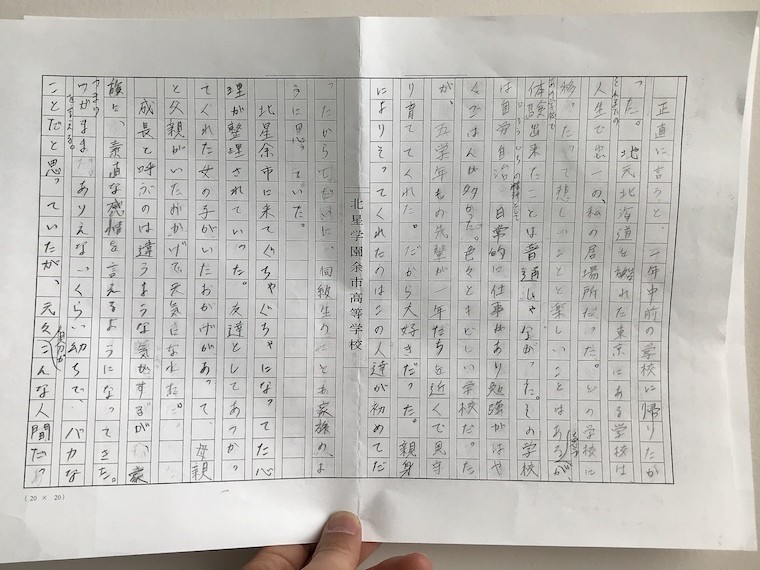 正直に言うと、二年中前の学校に帰りたか
った。地元北海道を離れた東京にある学校は
それまでの
人生で唯一の、私の居場所だった。どの学校に
移ったって悲しいことと楽しいことはあるが、
あの学校で
体験出来たことは普通じゃなかった。その学校
は自労自治 日常的に仕事があり勉強がはや
く人が多かった。色々ときびしい学校だった
が、五学年もの先輩が一年たちを近くで見守
り育ててくれた。だから大好きだった。親身
になりそってくれたのはこの人達が初めてだ
北星学園余市高等学校
ったから 同級生 家族のよ
うに思っていた。
北星余市に来てぐちゃぐちゃになってた心
理が整理されていった。友達としてあつかっ
てくれた女の子がいたおかげがあって、母親
と父親がいたおかげで元気になれた。
成長と呼ぶのは違うような気がするが、家
族に、素直な感情を言えるようになってきた。
つまり
ワガママ を言える。
ありえないくらい幼ちで、バカな
ことだと思っていたが、元々こんな人間だっ
自分が
(20 × 20)